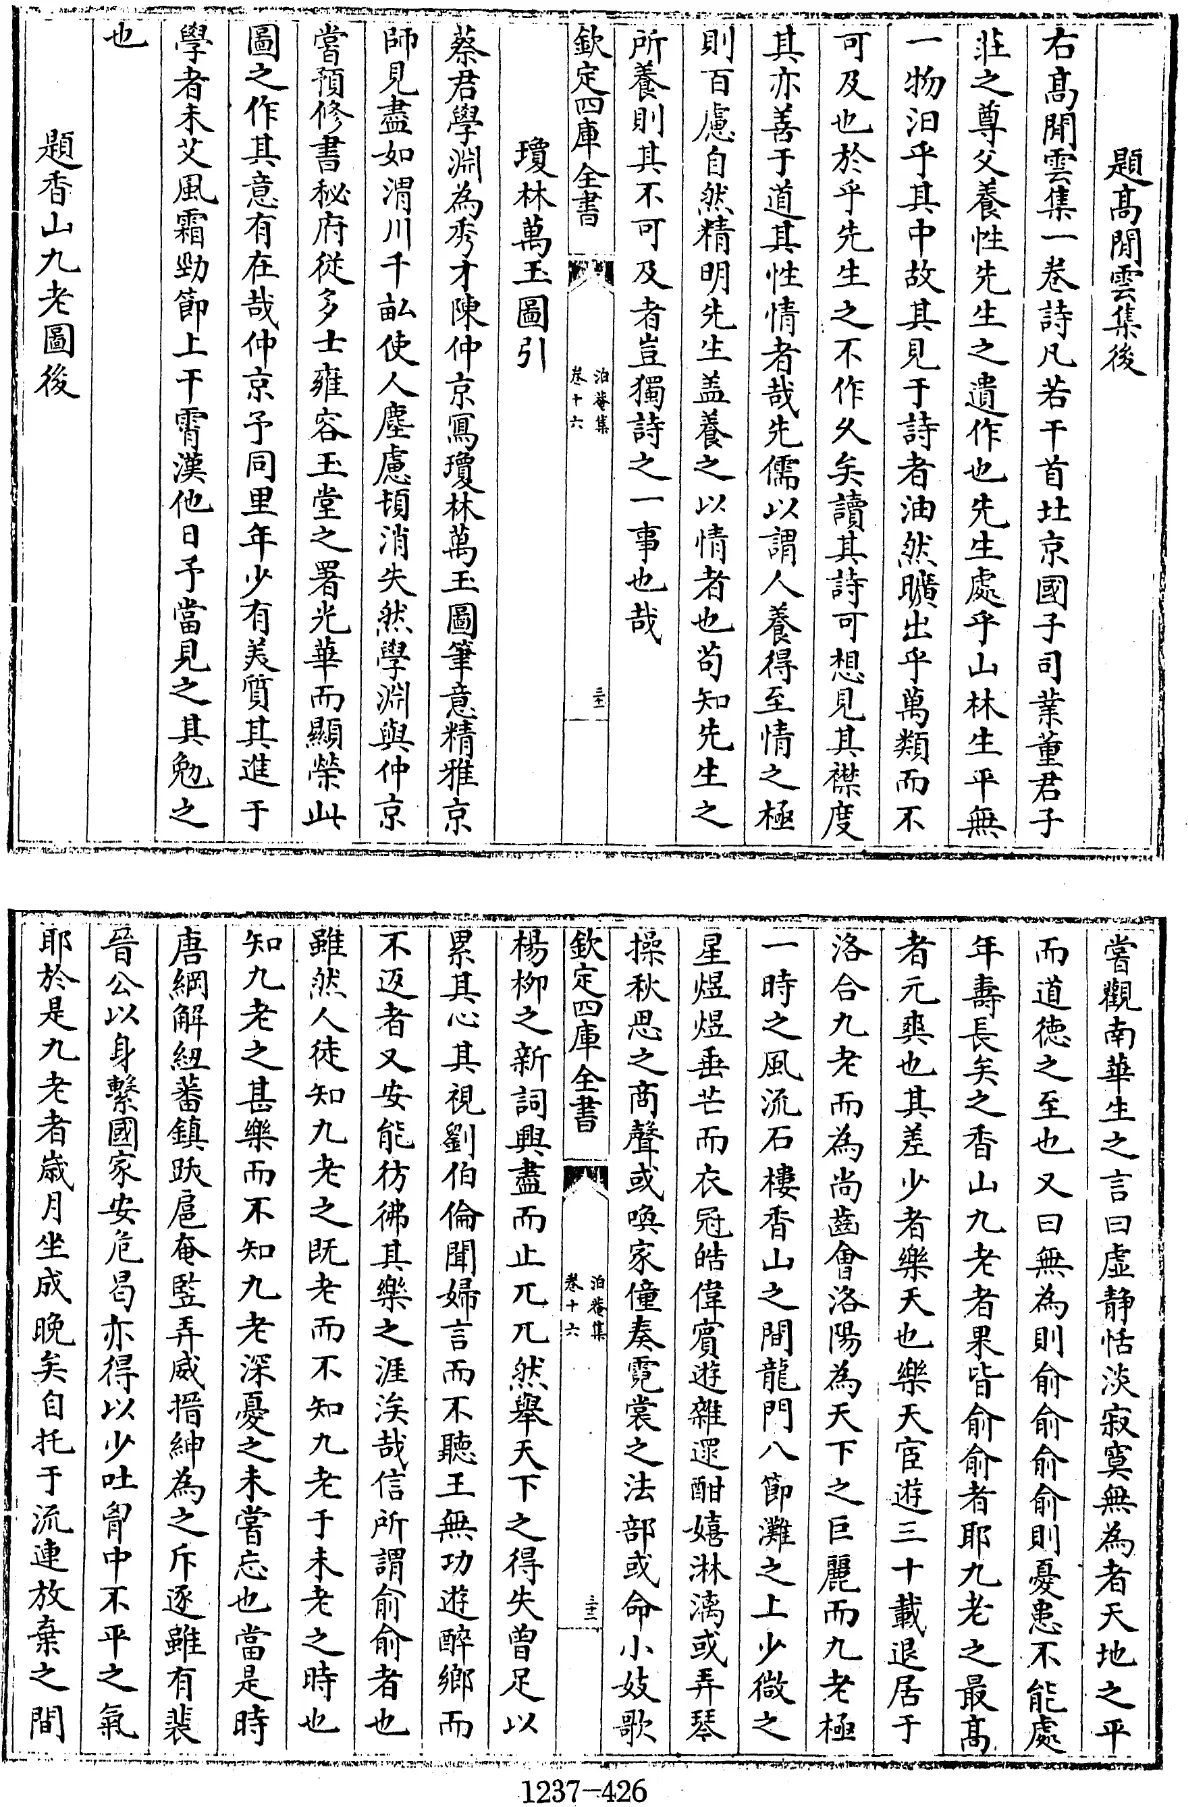 題髙閒雲集後
右髙閒雲集一卷詩凡若干首北京國子司業董君子
莊之尊父養性先生之遺作也先生處乎山林生平無
一物汨乎其中故其見于詩者油然曠出乎萬類而不
可及也於乎先生之不作久矣讀其詩可想見其襟度
其亦善于道其性情者哉先儒以謂人養得至情之極
則百慮自然精明先生盖養之以情者也苟知先生之
所養則其不可及者豈獨詩之一事也哉
欽定四庫全書
泊菴集
卷十六
三十一
瓊林萬玉圖引
蔡君學淵為秀才陳仲京寫瓊林萬玉圖筆意精雅京
師見盡如渭川千畝使人塵慮頓消失然學淵與仲京
嘗預修書秘府從多士雍容玉堂之署光華而顯榮此
圖之作其意有在哉仲京予同里年少有美質其進于
學者未艾風霜勁節上干霄漢他日予當見之其勉之
也
題香山九老圖後
嘗觀南華生之言曰虛静恬淡寂寞無為者天地之平
而道徳之至也又曰無為則俞俞俞俞則憂患不能處
年壽長矣之香山九老者果皆俞俞者耶九老之最髙
者元爽也其差少者樂天也樂天宦遊三十載退居于
洛合九老而為尚齒會洛陽為天下之巨麗而九老極
一時之風流石樓香山之間龍門八節灘之上少微之
星煜煜垂芒而衣冠皓偉賓遊雜遝酣嬉淋漓或弄琴
操秋思之商聲或喚家僮奏霓裳之法部或命小妓歌
欽定四庫全書
泊菴集
卷十六
三十二
楊柳之新詞興盡而止兀兀然舉天下之得失曾足以
累其心其視劉伯倫聞婦言而不聽王無功遊醉鄉而
不返者又安能彷彿其樂之涯涘哉信所謂俞俞者也
雖然人徒知九老之既老而不知九老于未老之時也
知九老之甚樂而不知九老深憂之未嘗忘也當是時
唐綱解紐蕃鎮跋扈奄監弄威搢紳為之斥逐雖有裴
晉公以身繫國家安危曷亦得以少吐胷中不平之氣
耶於是九老者嵗月坐成晚矣自托于流連放棄之間
1237—426